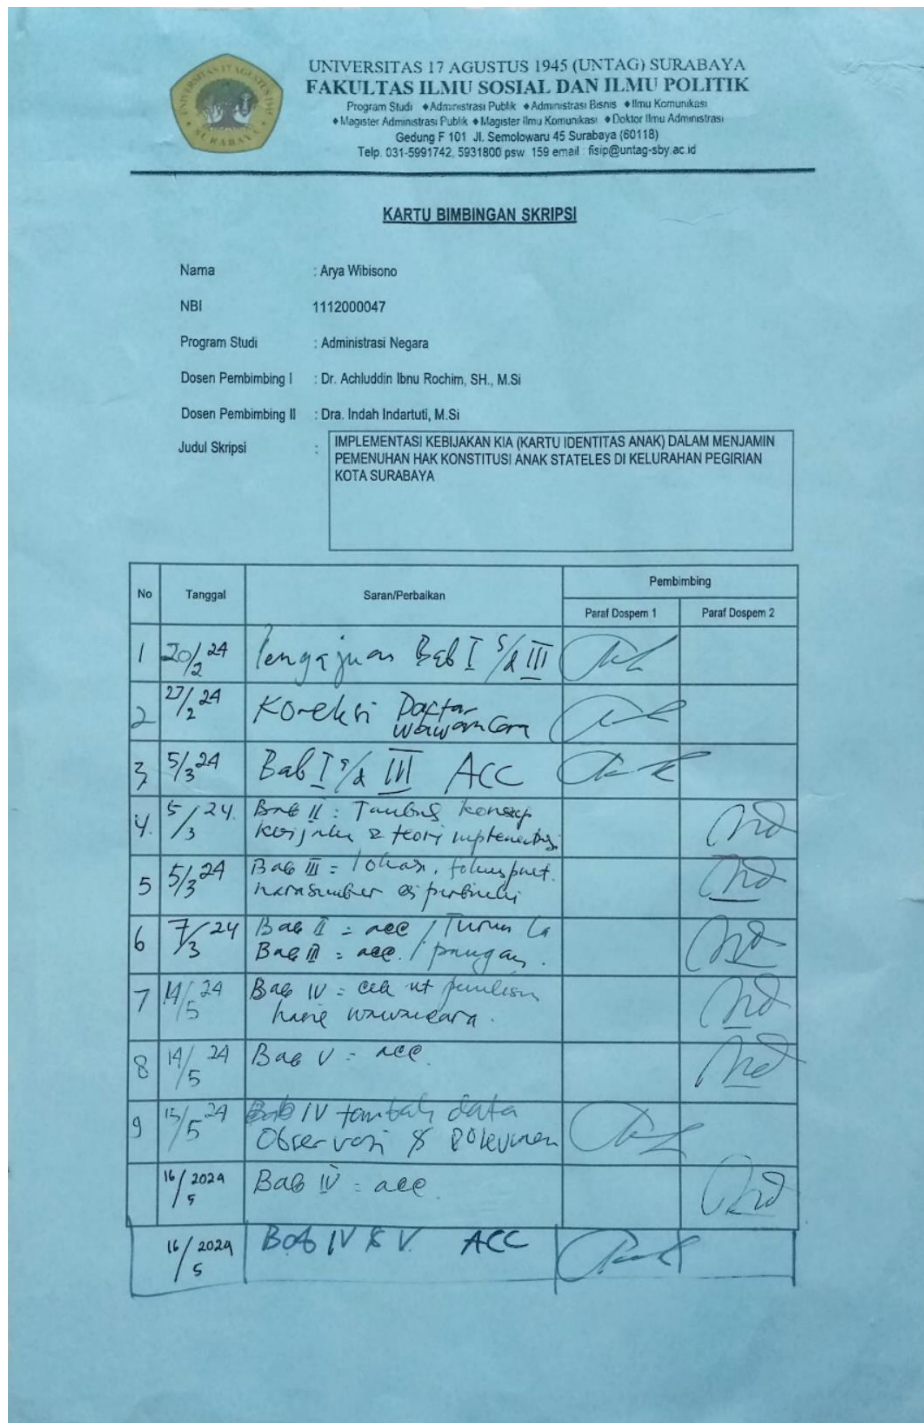 UNIVERSITAS 17 AGUSTUS 1945 (UNTAG) SURABAYA
FAKULTAS ILMU SOSIAL DAN ILMU POLITIK
Program Studi ♦Administrasi Publik ♦Administrasi Bisnis ♦Ilmu Komunikasi
♦Magister Administrasi Publik ♦Magister Ilmu Komunikasi ♦Doktor Ilmu Administrasi
Gedung F 101 Jl. Semolowaru 45 Surabaya (60118)
Telp. 031-5991742, 5931800 psw. 159 email : fisip@untag-sby.ac.id
KARTU BIMBINGAN SKRIPSI
Nama : Arya Wibisono
NBI 1112000047
Program Studi : Administrasi Negara
Dosen Pembimbing I : Dr. Achluddin Ibnu Rochim, SH., M.Si
Dosen Pembimbing II : Dra. Indah Indartuti, M.Si
Judul Skripsi : IMPLEMENTASI KEBIJAKAN KIA (KARTU IDENTITAS ANAK) DALAM MENJAMIN
PEMENUHAN HAK KONSTITUSI ANAK STATELES DI KELURAHAN PEGIRIAN
KOTA SURABAYA
No Tanggal Saran/Perbaikan Pembimbing
Paraf Dospem 1 Paraf Dospem 2
1 20/2 24 Pengajuan Bab I s/d III
2 27/2 24 Koreksi Daftar
wawancara
3 5/3 24 Bab I s/d III ACC
4. 5/3 24. Bab II : Tambah konsep
kebijakan & teori implementasi
5 5/3 24 Bab III = lokasi,
narasumber
6 7/3 24 Bab II = acc / Turun la
Bab III = acc. / pangan.
7 14/5 24 Bab IV = cek penulisan
hasil wawancara.
8 14/5 24 Bab V = acc.
9 15/5 24 Bab IV tambah data
Observasi & Dokumen
16/5 2024 Bab IV = acc
16/5 2024 Bab IV & V. ACC